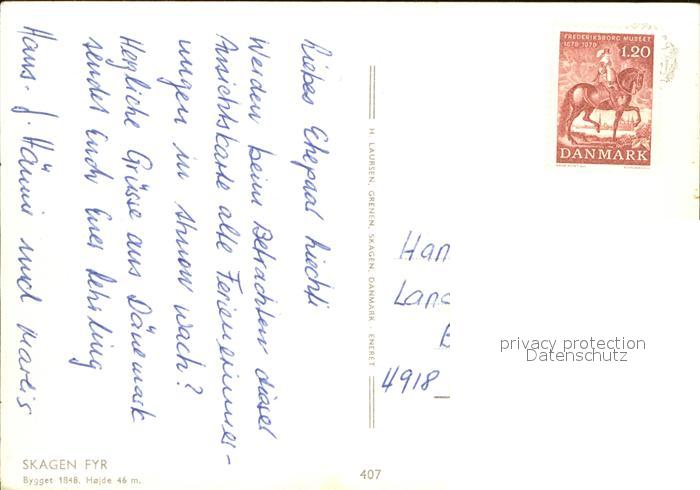 Liebes Ehepaar Liechti
Werden beim Betrachten dieser
Ansichtskarte alte Ferienerinner-
ungen in wach?
Herzliche Grüsse aus Dänemark
sendet Euch Euer Lehrling
Hans- J. Hänni und
H. LAURSEN, GRENEN, SKAGEN, DANMARK - ENERET
FREDERIKSBORG MUSEET
1878 1978
1.20
DANMARK
Han
Land
4918
privacy protection
Datenschutz
SKAGEN FYR
Bygget 1848. Højde 46 m.
407